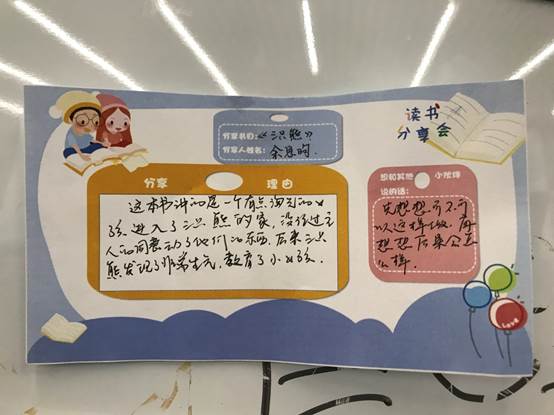 读书
分享会
分享书目:《三只熊》
分享人姓名: 余思昀.
分享 理由
这本书讲的是一个有点淘气的小
孩.进入了三只熊的家,没经过主
人的同意动了他们的东西.后来三只
熊发现了非常生气,教育了小女孩.
想和其他 小伙伴
说的话:
先想想可不可
以这样做.再
想想后果会怎
么样.
Love